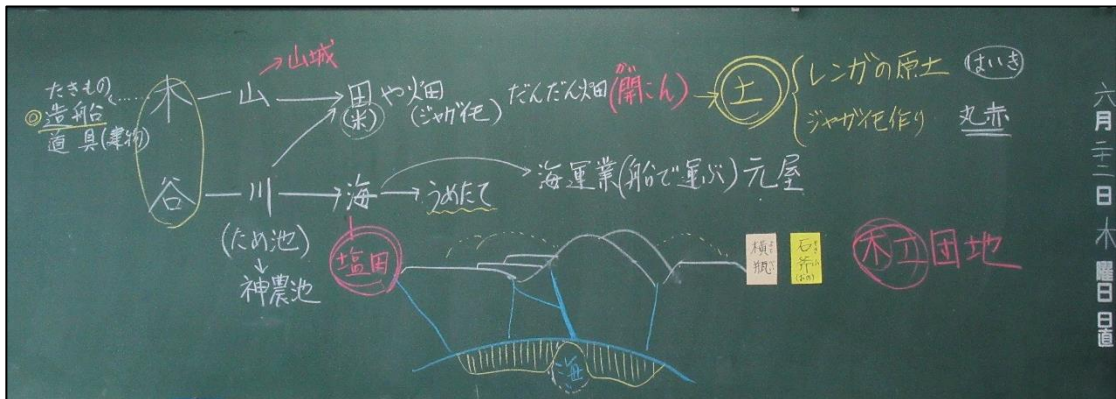 山城
たきもの
◎造船
道具(建物)
木 山 田や畑
(米) (ジャガイモ)
だんだん畑(開こん)
がい
土
レンガの原土
はいき
ジャガイモ作り
丸赤
谷 川 海 うめたて
海運業(船で運ぶ)元屋
(ため池)
神農池
塩田
横瓶
石斧
木工団地
海
六月二十二日木曜日日直